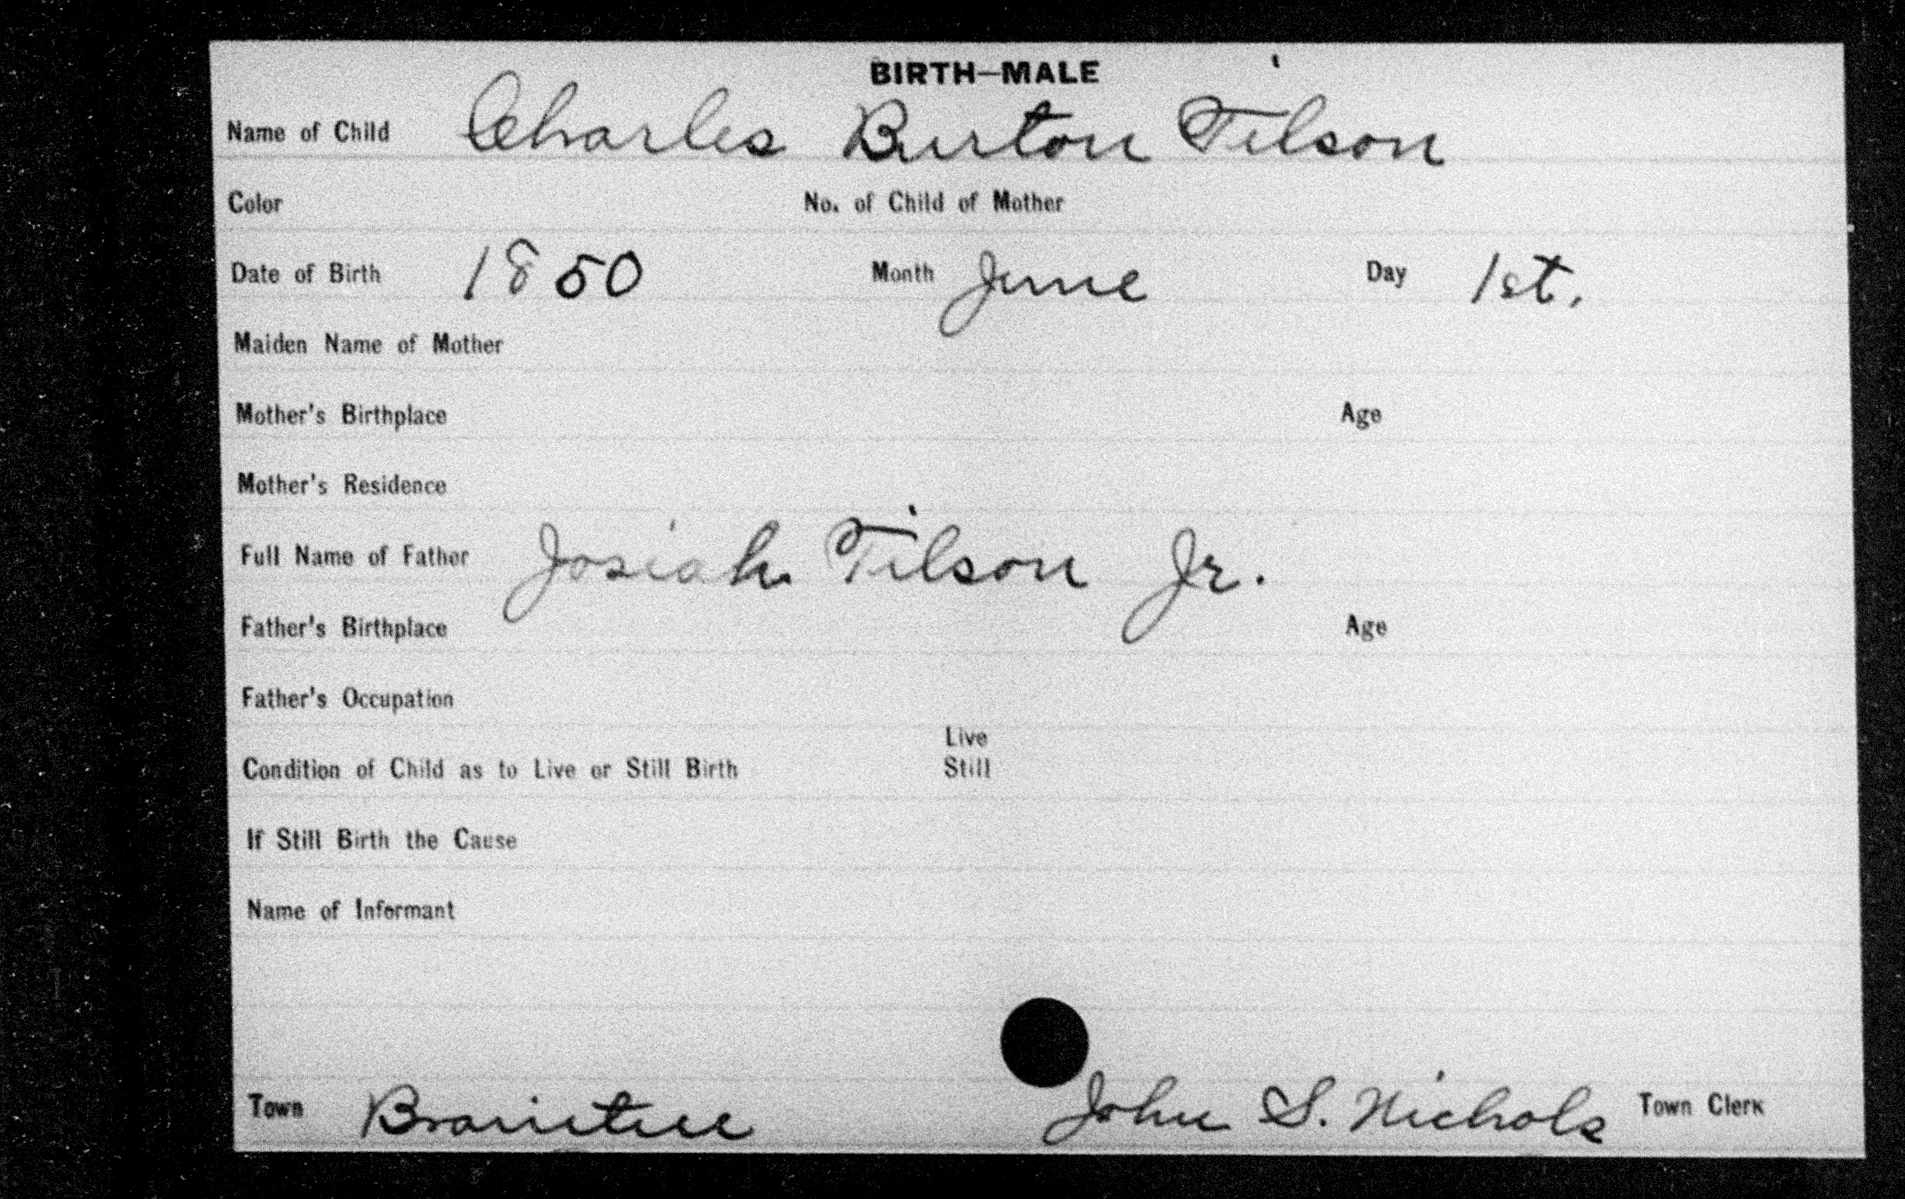 BIRTH—MALE
Name of Child Charles Burton Tilson
Color No. of Child of Mother
Date of Birth 1850 Month June Day 1st.
Maiden Name of Mother
Mother's Birthplace Age
Mother's Residence
Full Name of Father Josiah Tilson Jr.
Father's Birthplace Age
Father's Occupation
Live
Condition of Child as to Live or Still Birth Still
If Still Birth the Cause
Name of Informant
Town Braintree John S. Nichols Town Clerk